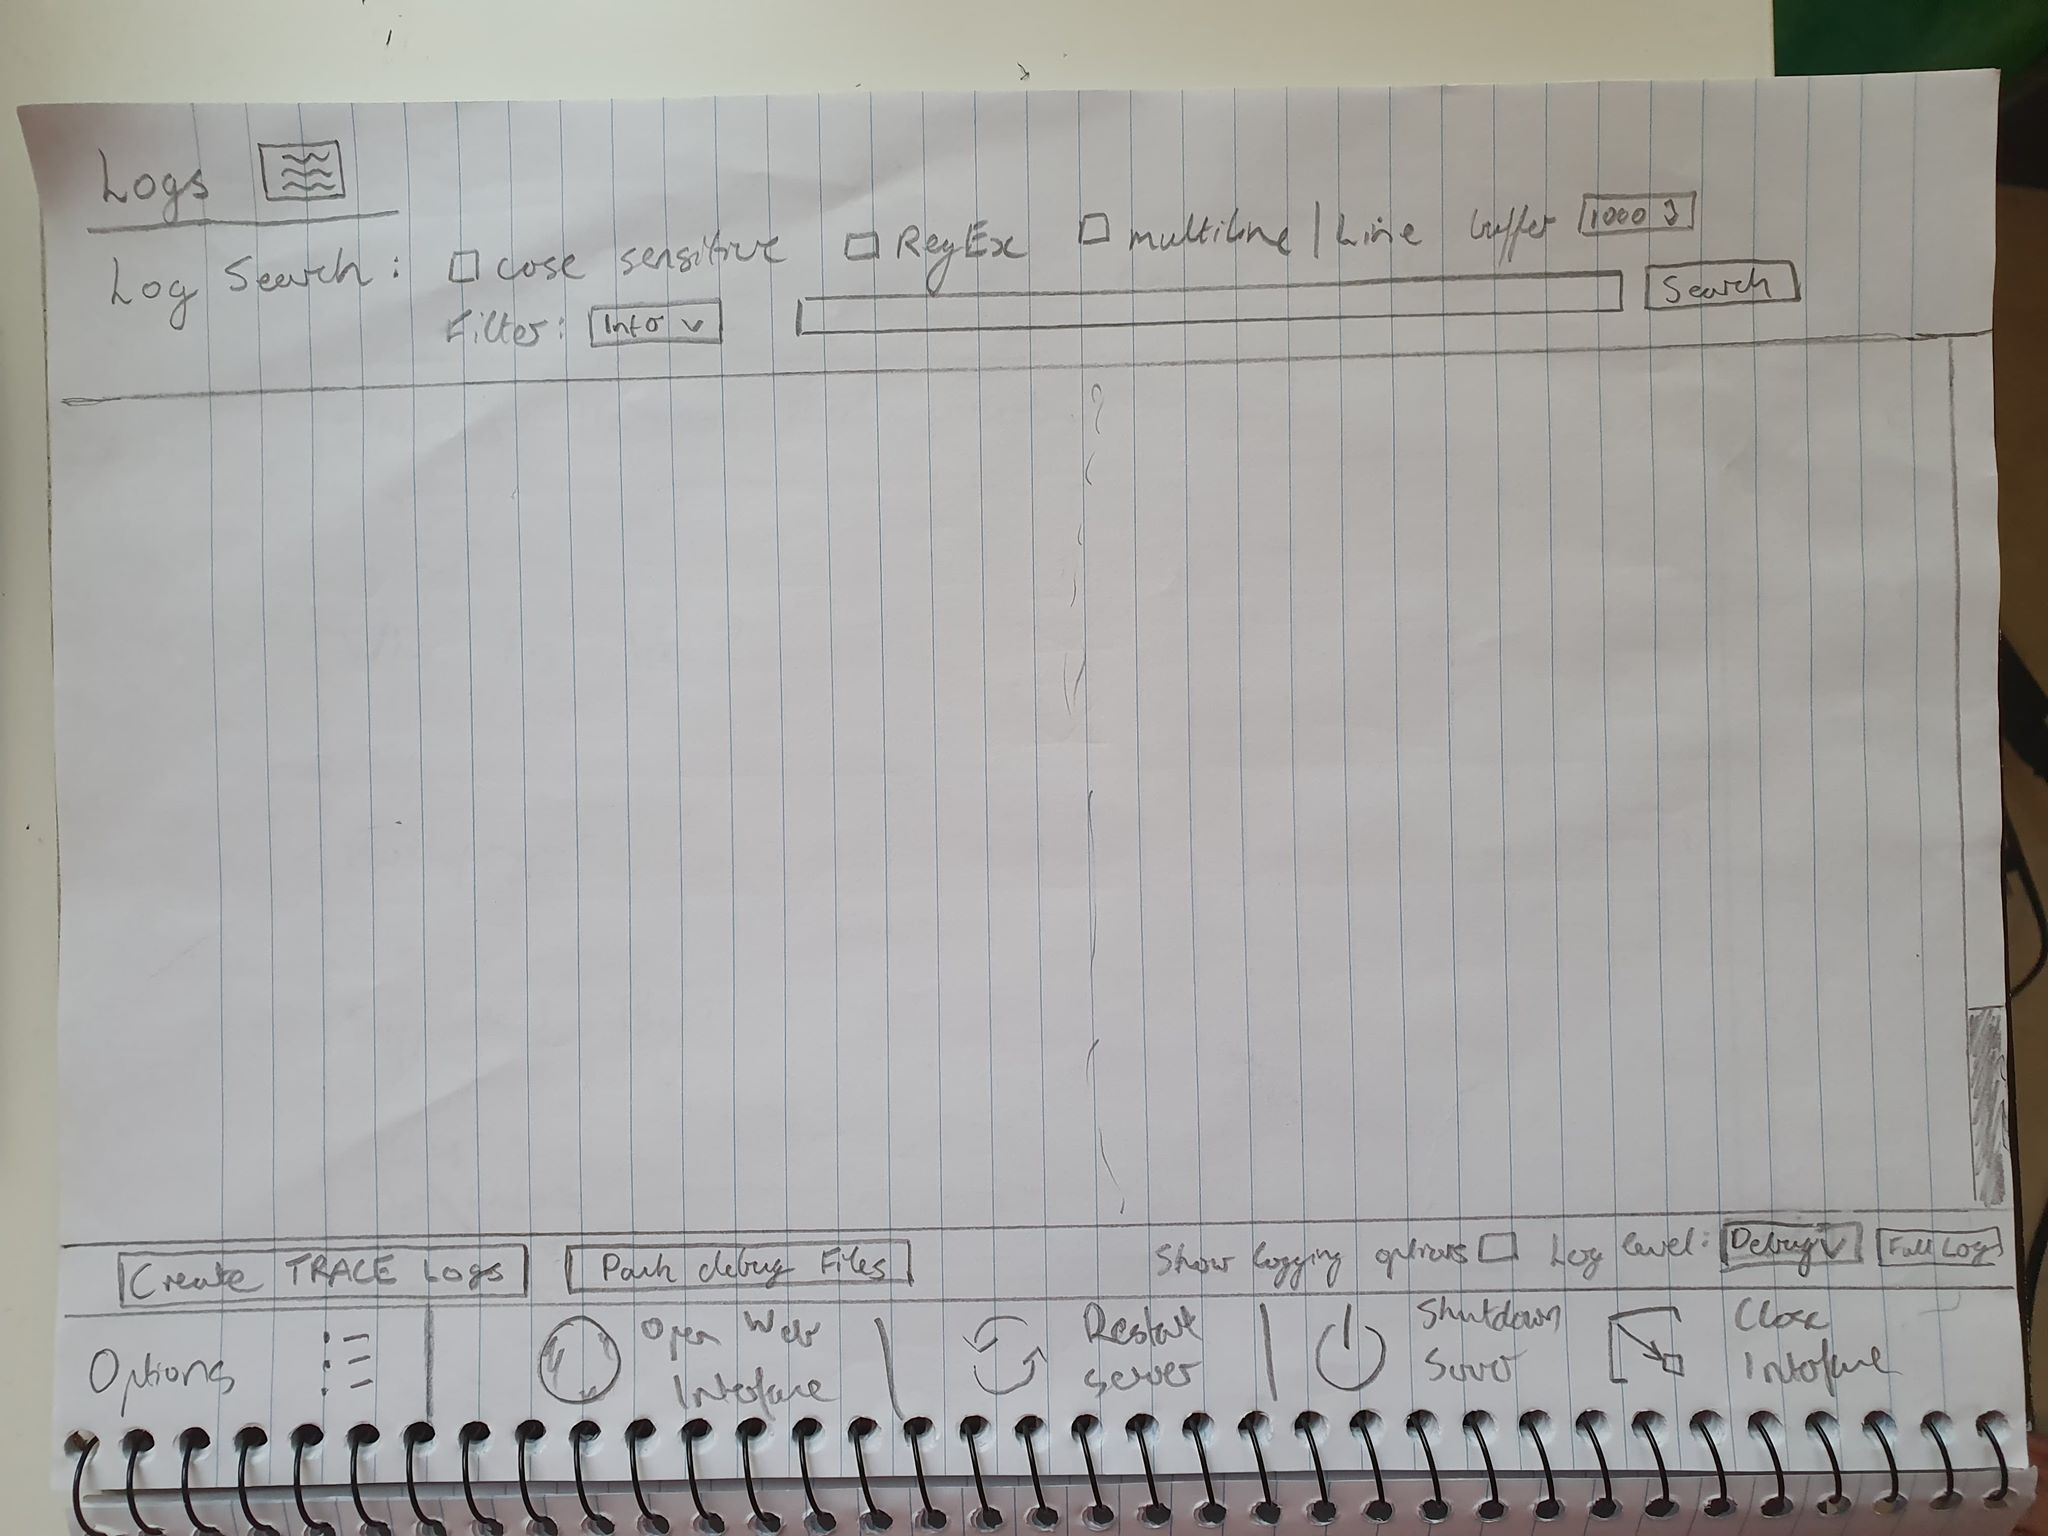 Logs
Log Search: case sensitive RegEx multiline | Line buffer 1000
Filter: Info Search
Create TRACE Logs Pack debug Files Show logging options Log level: Debug Full Log
Options Open Web Interface Restart server Shutdown Server Close Interface